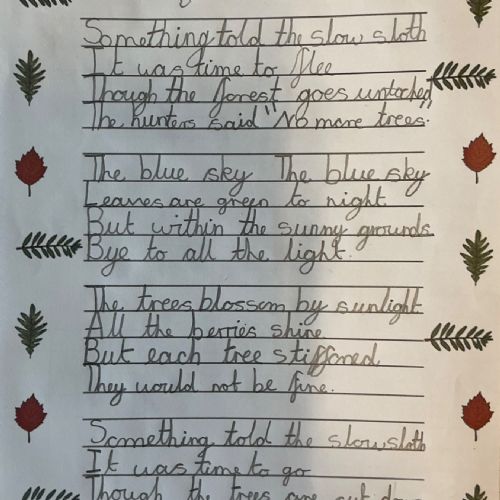 Something told the slow sloth
It was time to flee
Though the forest goes untoched"
The hunters said "No more trees.
The blue sky The blue sky
Leaves are green to night
But within the sunny grounds
Bye to all the light.
The trees blossom by sunlight
All the berries shine
But each tree stiffened
They would not be fine.
Something told the slow sloth
It was time to go
Though the trees are cut down